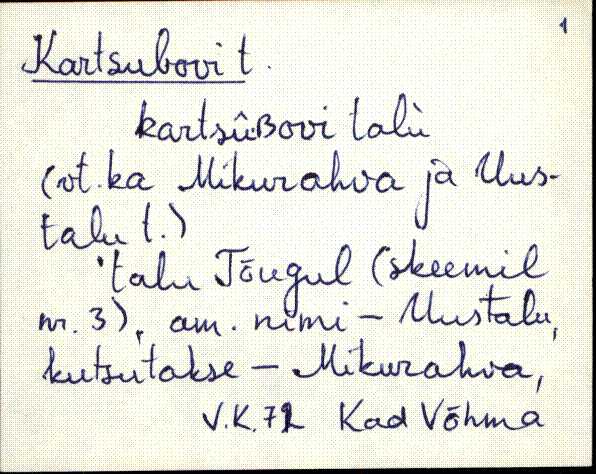 1
Kartsubovi t.
kartsûʙovi talù
(vt. ka Mikurahva ja Uus-
talu t.)
'talu Tõugul (skeemil
nr. 3), am. nimi – Uustalu,
kutsutakse – Mikurahva,
V.K. 72 Kad Võhma